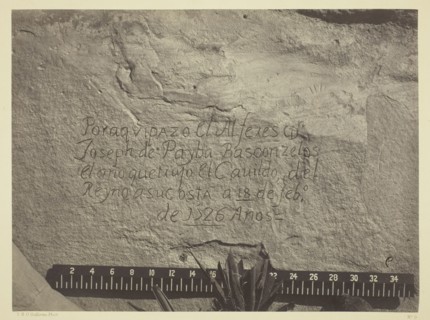 Por aqui pazo el Alferes Dn
Joseph de Payba Basconzelos
el año que trujo el Cauildo del
Reyno a su costa a 18 de febo
de 1726 Años
2 4 6 8 10 12 14 16 22 24 26 28 30 32 34